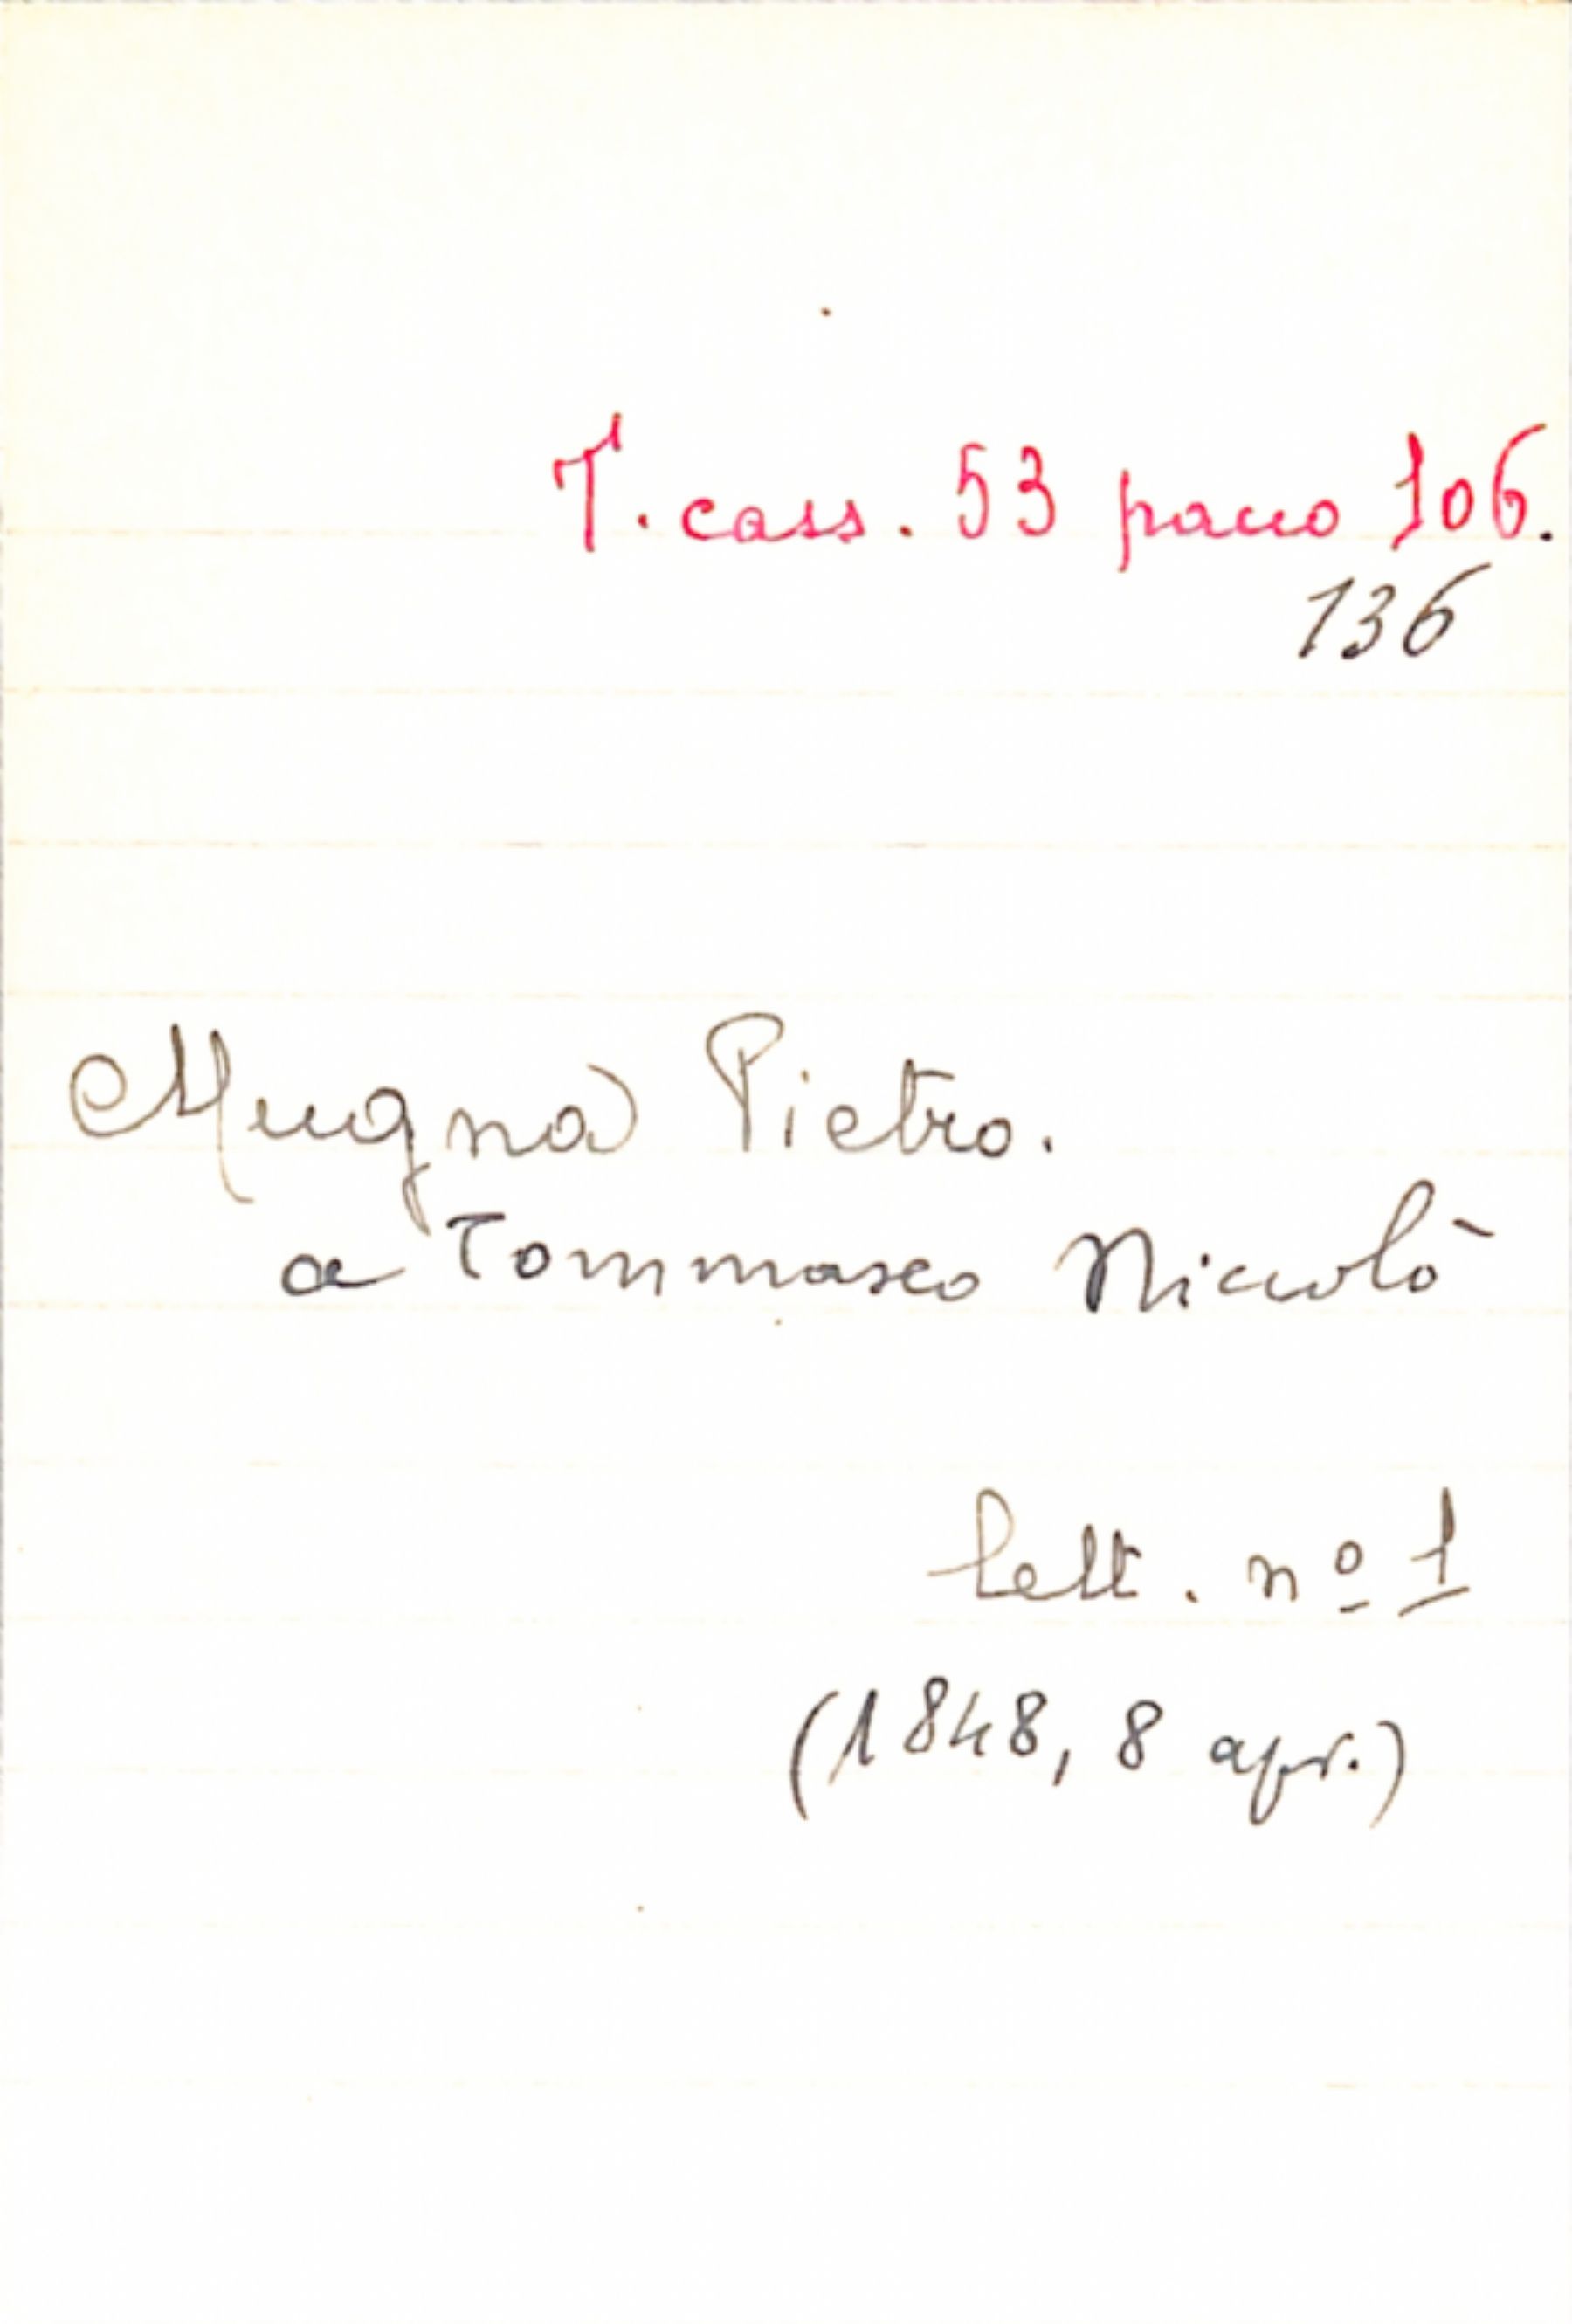 T. cass. 53 pacco 106.
136
Mugna Pietro.
a Tommaseo Niccolò
lett. nº 1
(1848, 8 apr.)